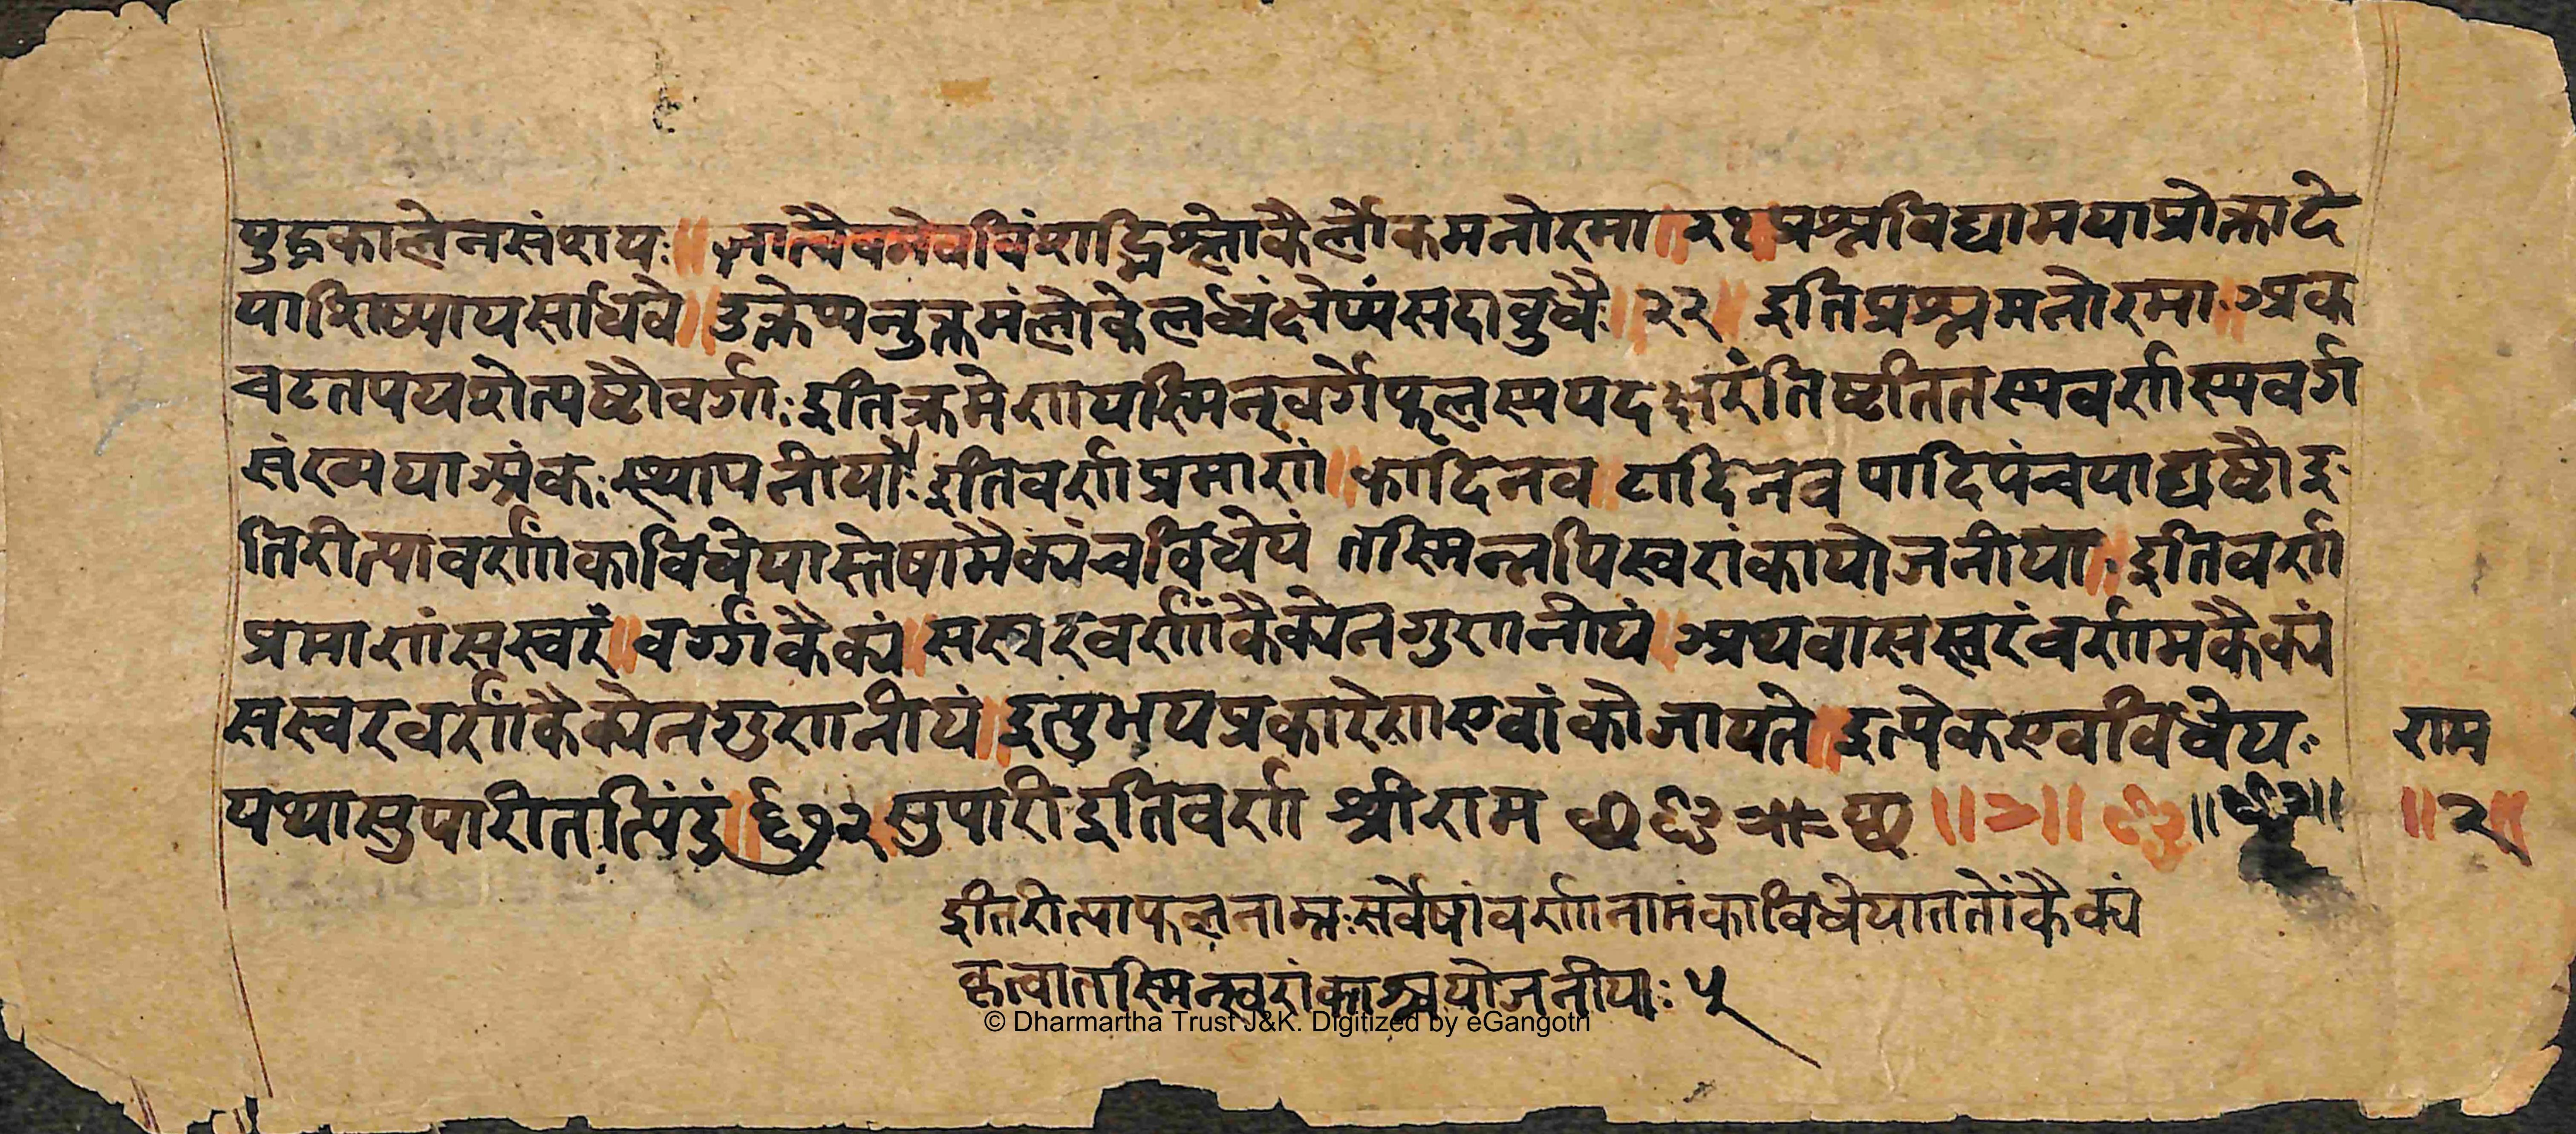 युद्धकालेनसंशयः॥ ज्ञात्वैवमेवविंशद्भिश्लोकैर्लोकमनोरमा॥२१॥प्रश्नविद्यामयाप्रोक्तादे
याशिष्यायसाधवे॥उक्तेप्यनुक्तमंलोकेलब्धंक्षेप्यंसदाबुधैः॥२२॥ इतिप्रश्नमनोरमा॥अक
चटतपयशेत्यष्टौवर्गाः इतिक्रमेणयस्मिन्वर्गेफलस्ययदक्षरंतिष्टतितस्यवर्णस्यवर्ग
संख्ययाअंकः स्थापनीयोः इतिवर्णप्रमाणं॥कादिनव॥टादिनवपादिपंचयाद्यष्टौइ
तिरीत्यावर्णांकाविधेयास्तेषामैक्यंचविधेयं तस्मिन्नपिस्वरांकायोजनीया॥इतिवर्ण
प्रमाणंसस्वरं॥वर्गांकैक्यं॥सस्वरवर्णांकैक्येनगुणनीयं॥अथवासस्वरंवर्णामकैक्यं
सस्वरवर्णांकैक्येनगुणनीयं॥इत्युभयप्रकारेणएवांकोजायते॥इत्येकएवविधेयः
यथासुपारीतत्पिंडं॥६७२॥सुपारीइतिवर्ण श्रीराम
राम
॥२॥
इतिरीत्याफलनाम्नःसर्वेषांवर्णानामंकाविधेयाततोंकैक्यं
कृत्वातस्मिन्स्वरांकाश्चयोजनीयाः ५
© Dharmartha Trust J&K. Digitized by eGangotri